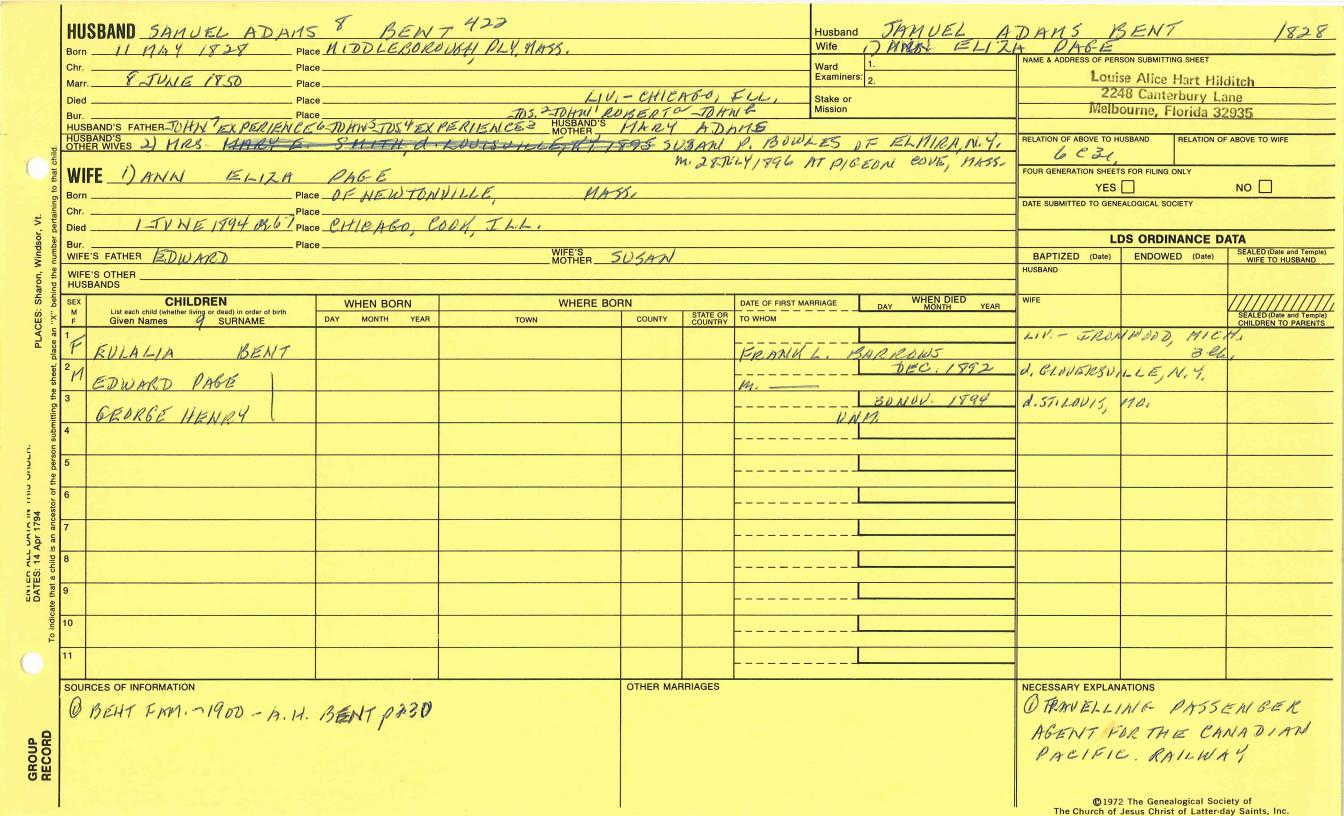 HUSBAND SAMUEL ADAMS 8 BENT 422
Born 11 MAY 1828 Place MIDDLEBOROUGH, PLY, MASS.
Chr. Place
Marr. 8 JUNE 1850 Place
Died Place LIV.- CHICAGO, ILL,
Bur. Place JOS.2 JOHN1 ROBERT JOHN
HUSBAND'S FATHER JOHN7 EXPERIENCE6 JOHN5 JOS4 EXPERIENCE3 HUSBAND'S MOTHER MARY ADAMS
HUSBAND'S OTHER WIVES 2) MRS. MARY E. SMITH, d. LOUISVILLE, KY 1895 SUSAN P. BOWLES OF ELMIRA, N.Y.
m. 28 JULY 1896 AT PIGEON COVE, MASS.
WIFE 1) ANN ELIZA PAGE
Born Place OF NEWTONVILLE, MASS.
Chr. Place
Died 1 JUNE 1894 Place CHICAGO, COOK, ILL.
Bur. Place
WIFE'S FATHER EDWARD WIFE'S MOTHER SUSAN
WIFE'S OTHER HUSBANDS
Husband SAMUEL ADAMS BENT 1828
Wife 1) ANN ELIZA PAGE
Ward Examiners: 1.
2.
Stake or Mission
NAME & ADDRESS OF PERSON SUBMITTING SHEET
Louise Alice Hart Hilditch
2248 Canterbury Lane
Melbourne, Florida 32935
RELATION OF ABOVE TO HUSBAND RELATION OF ABOVE TO WIFE
6 C 3r,
FOUR GENERATION SHEETS FOR FILING ONLY
YES NO
DATE SUBMITTED TO GENEALOGICAL SOCIETY
LDS ORDINANCE DATA
BAPTIZED (Date) ENDOWED (Date) SEALED (Date and Temple) WIFE TO HUSBAND
HUSBAND
WIFE
SEALED (Date and Temple) CHILDREN TO PARENTS
SEX M F CHILDREN WHEN BORN WHERE BORN DATE OF FIRST MARRIAGE WHEN DIED
List each child (whether living or dead) in order of birth
Given Names 9 SURNAME DAY MONTH YEAR TOWN COUNTY STATE OR COUNTRY TO WHOM DAY MONTH YEAR
1 F EULALIA BENT FRANK L. BARROWS LIV.- IRONWOOD, MICH.
3 ch.
2 M EDWARD PAGE m. DEC. 1892 d. GLOVERSVILLE, N.Y.
3 GEORGE HENRY UNM. 30 NOV. 1894 d. ST. LOUIS, MO.
4
5
6
7
8
9
10
11
SOURCES OF INFORMATION
① BENT FAM. - 1900 - A. H. BENT p230
OTHER MARRIAGES
NECESSARY EXPLANATIONS
① TRAVELLING PASSENGER
AGENT FOR THE CANADIAN
PACIFIC. RAILWAY
©1972 The Genealogical Society of
The Church of Jesus Christ of Latter-day Saints, Inc.
PLACES: Sharon, Windsor, Vt.
DATES: 14 Apr 1794
To indicate that a child is an ancestor of the person submitting the sheet, place an "X" behind the number pertaining to that child.
GROUP RECORD